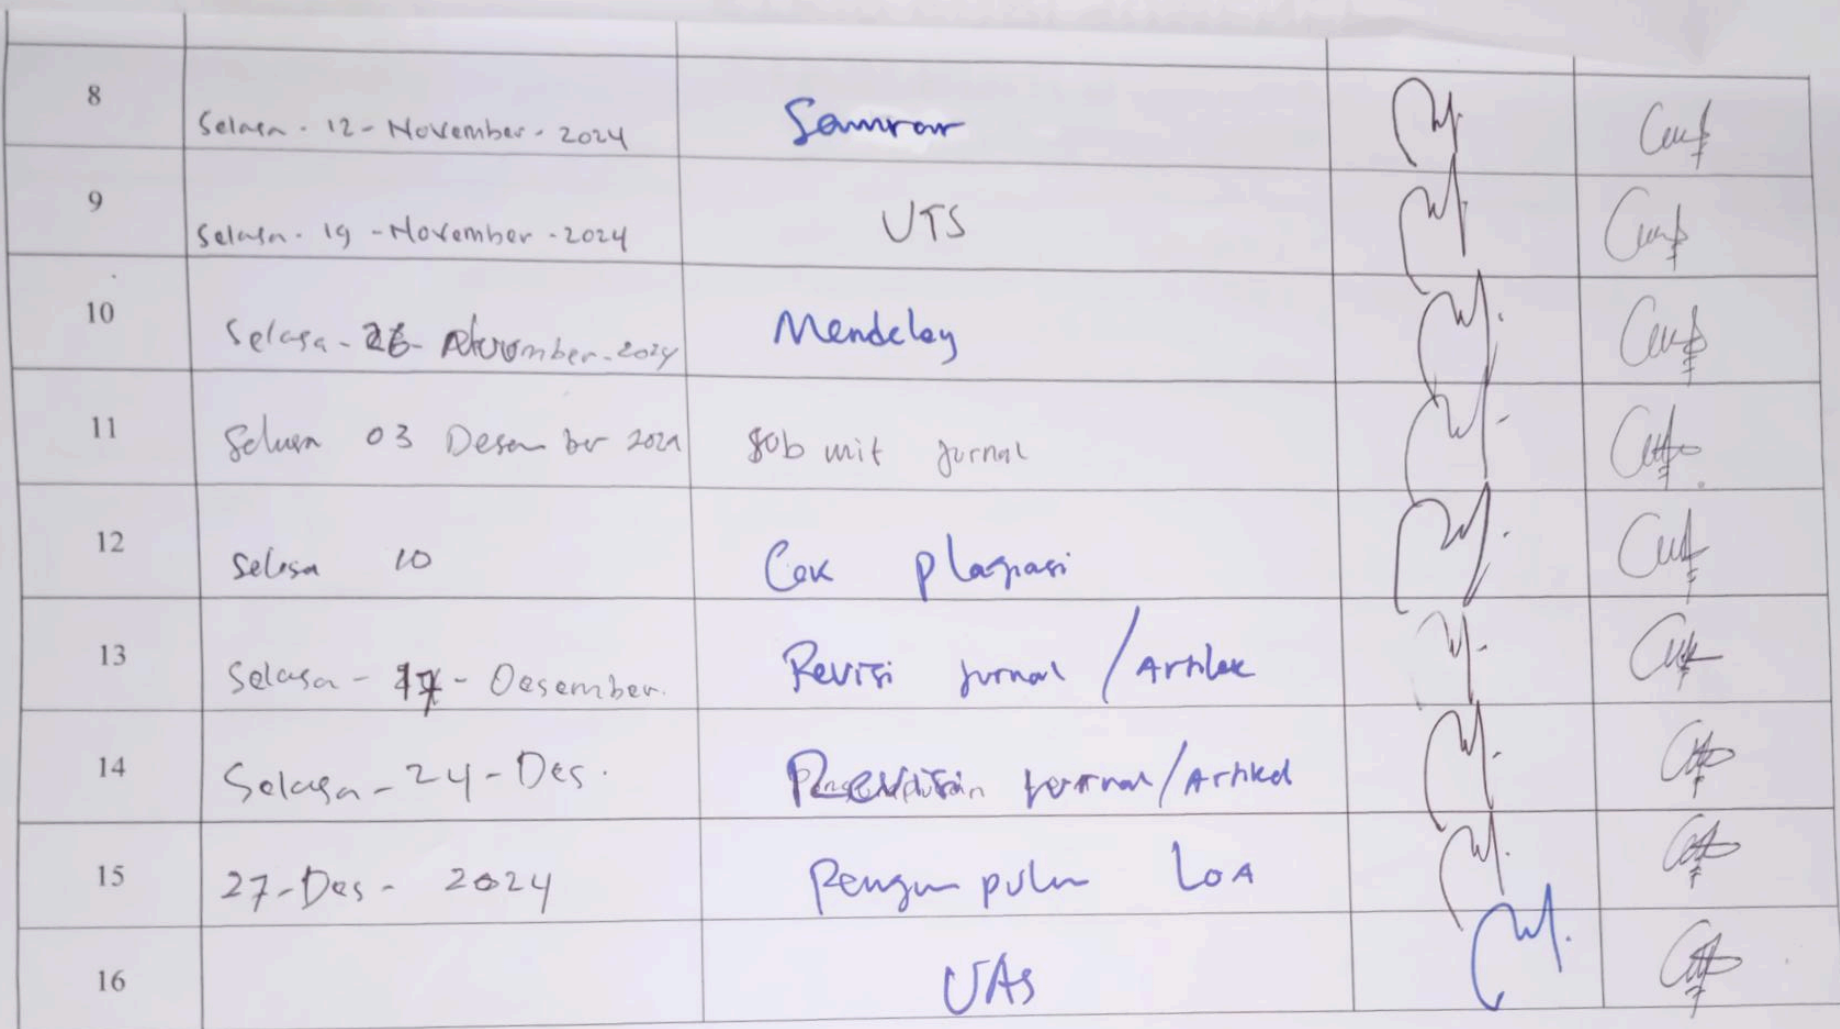 8 Selasa - 12 - November - 2024
9 Selasa - 19 - November - 2024 UTS
10 Selasa - 26 - November - 2024 Mendeley
11 Selasa 03 Desember 2024 Submit Jurnal
12 Selasa 10 Cek plagiasi
13 Selasa - 17 - Desember. Revisi Jurnal / Artikel
14 Selasa - 24 - Des. Jurnal / Artikel
15 27 - Des - 2024 Pengumpulan LoA
16 UAS